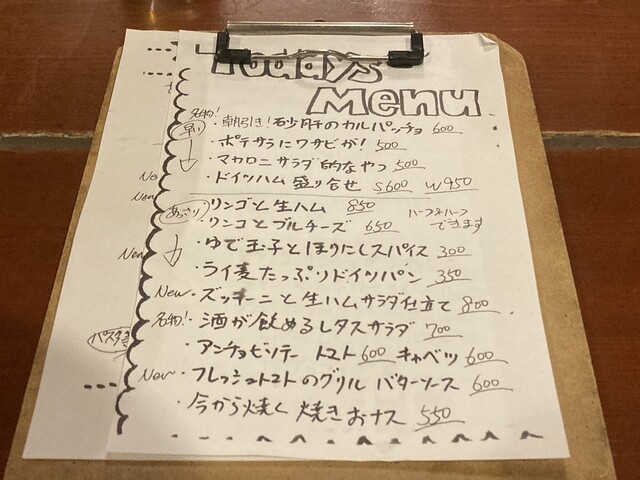 Today's
Menu
名物!
早い
・朝引き!砂肝のカルパッチョ 600
・ポテサラにワサビが! 500
・マカロニサラダ的なやつ 500
・ドイツハム盛り合せ S600 W950
あっさり
・リンゴと生ハム 850
・リンゴとブルチーズ 650
ハーフ&ハーフ
できます
・ゆで玉子とほりにしスパイス 300
・ライ麦たっぷりドイツパン 350
New・ズッキーニと生ハムサラダ仕立て 800
名物!・酒が飲めるレタスサラダ 700
・アンチョビソテー トマト600 キャベツ600
New・フレッシュトマトのグリル バターソース 600
・今から焼く 焼きおナス 550
New
New
New
パスタ